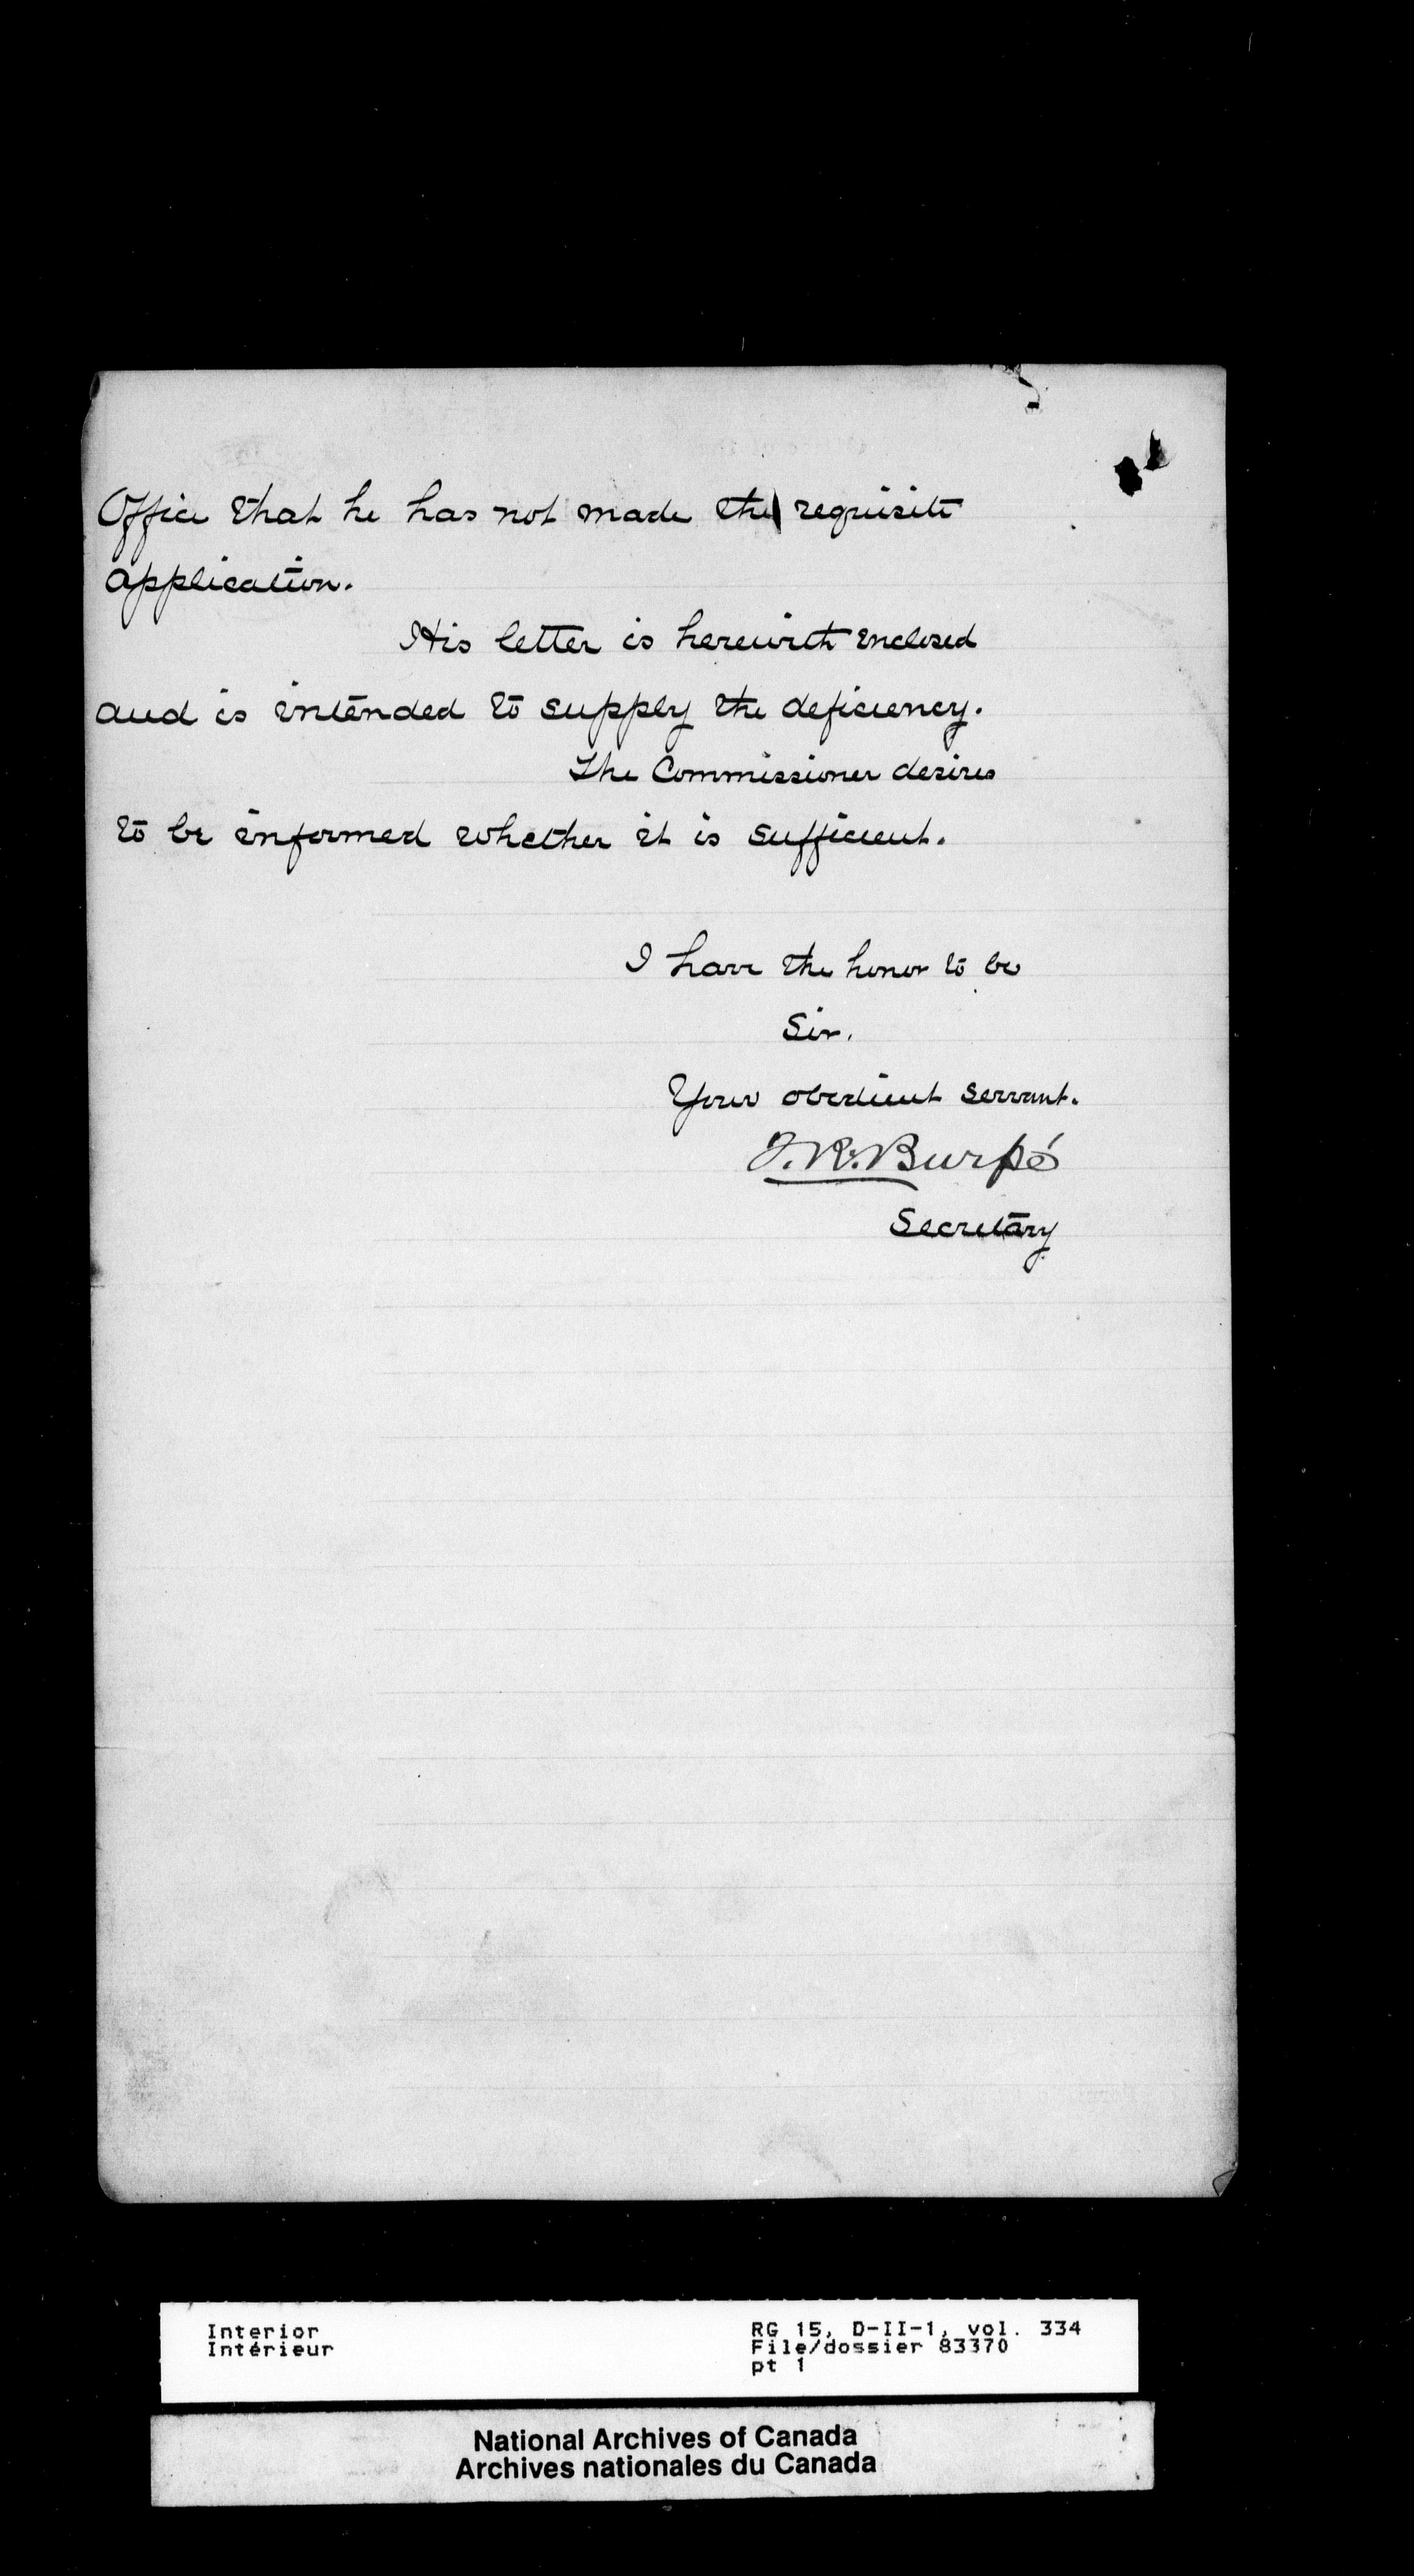 Office that he has not made the requisite
application.
His letter is herewith enclosed
and is intended to supply the deficiency.
The Commissioner desires
to be informed whether it is sufficient.
I have the honor to be
Sir,
Your obedient servant.
J. R. Burpé
Secretary
Interior
Intérieur
RG 15, D-II-1, vol. 334
File/dossier 83370
pt 1
National Archives of Canada
Archives nationales du Canada